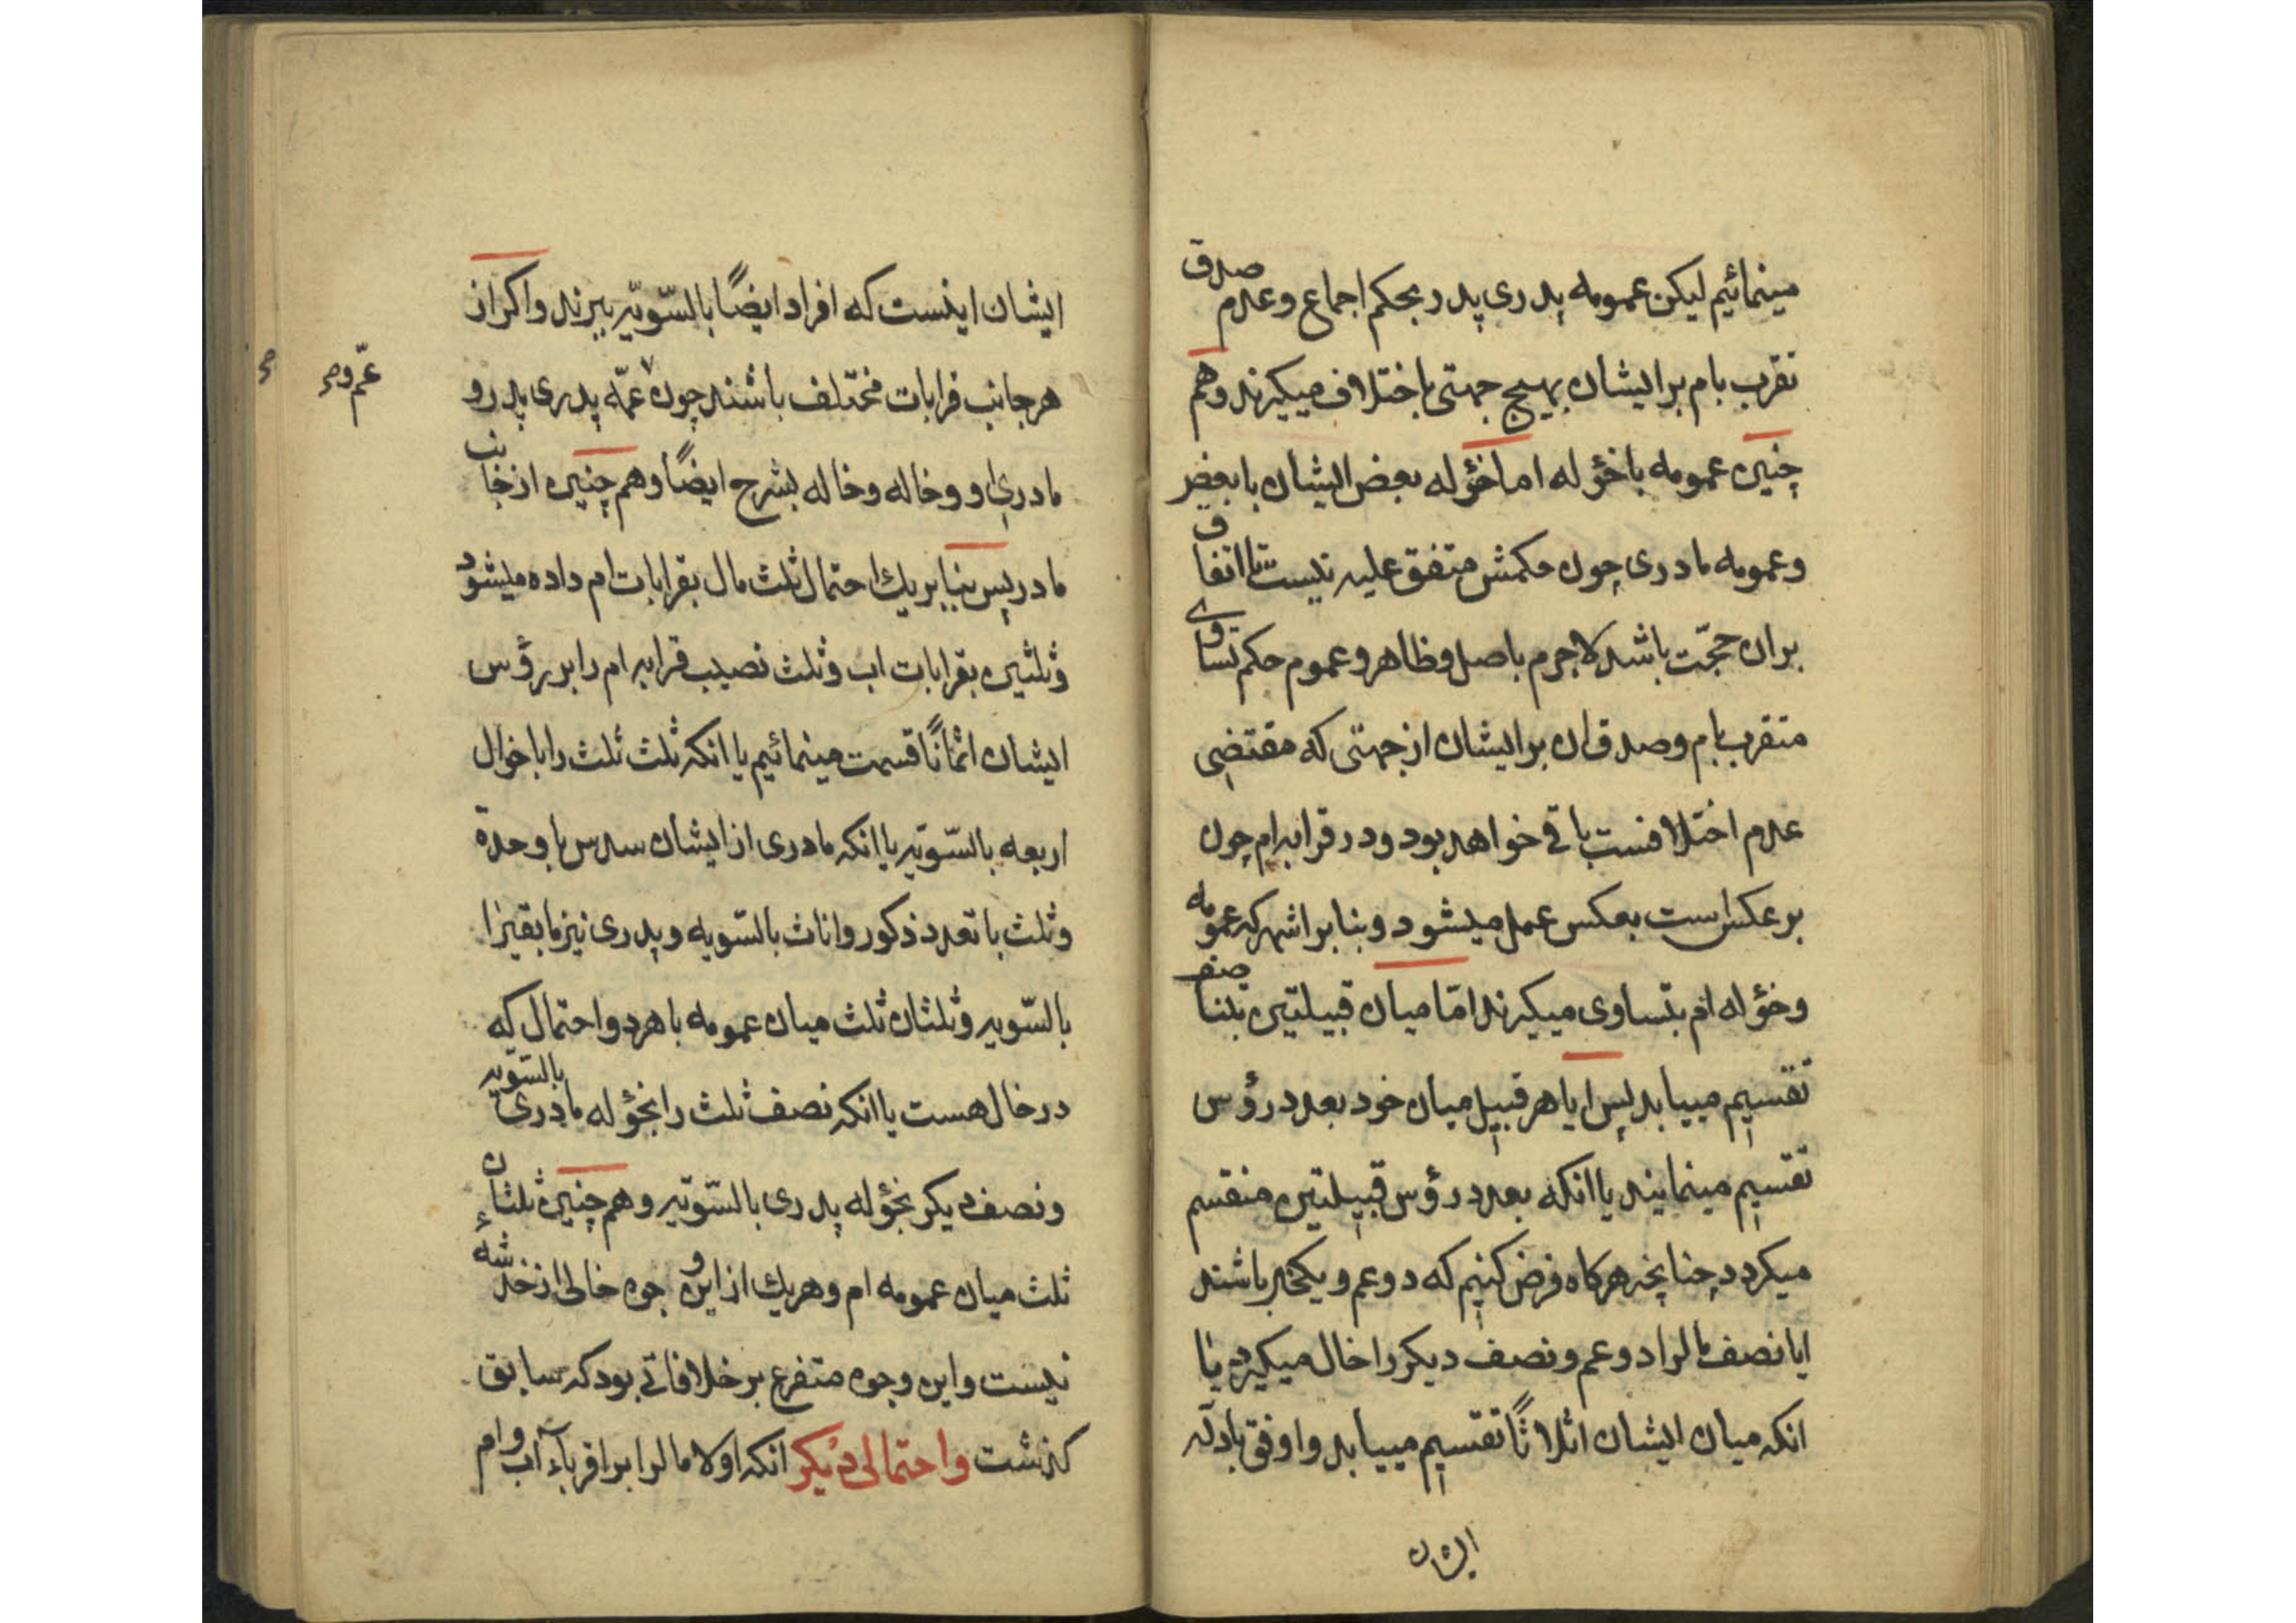 مینمائیم لیکن عمومه پدری پدر بحکم اجماع وعدم صدق
تقرب بام بر ایشان بهیچ جهتی باختلاف میکیرند وهم
چنین عمومه باخؤله اما خؤله بعض ایشان با بعض
وعمومه مادری چون حکمش متفق علیه نیست تا اتفاق
بران حجّت باشد لاجرم باصل وظاهر وعموم حکم تساوی
متقرب بام وصدق ان بر ایشان از جهتی که مقتضی
عدم اختلافست باقی خواهد بود ودر قرابه ام چون
بر عکس است بعکس عمل میشود وبنا بر اشهر که عمومه
وخؤله ام بتساوی میکیرند امّا میان قبیلتین بتناصف
تقسیم مییابد پس ایا هر قبیل میان خود بعدد رؤس
تقسیم مینمایند یا انکه بعدد رؤس قبیلتین منقسم
میکردد چنانچه هرکاه فرض کنیم که دو عم ویکخال باشند
ایا نصف مالرا دو عم ونصف دیکر را خال میکیرد یا
انکه میان ایشان اثلاثًا تقسیم مییابد واوفق بادلّه
ایشان
ایشان اینست که افراد ایضًا بالسّویّه ببرند واکر از
هر جانب قرابات مختلف باشند چون عمّه پدری پدر و
عمّ و
مادری او وخاله وخاله بشرح ایضًا وهم چنین از جانب
مادر پس بنا بر یك احتمال ثلث مال بقرابات ام داده میشود
وثلثین بقرابات اب وثلث نصیب قرابه ام را بر رؤس
ایشان اثمانًا قسمت مینمائیم یا انکه ثلث ثلث را باخوال
اربعه بالسّویّه یا انکه مادری از ایشان سدس با وحدة
وثلث با تعدد ذکور واناث بالسّویه وپدری نیز مابقیرا
بالسّویه وثلثان ثلث میان عمومه باهر دو احتمال که
در خال هست یا انکه نصف ثلث را بخؤله مادری بالسّویه
ونصف دیکر بخؤله پدری بالسّویّه وهم چنین ثلثان
ثلث میان عمومه ام وهریك از این وجوه خالی از خدشهٔ
نیست واین وجوه متفرع بر خلافاتی بود که سابق
کذشت واحتمالی دیکر انکه اولا مالرا بر اقرباء اب وام